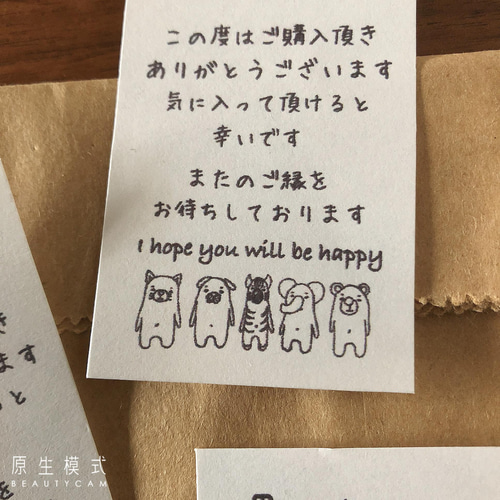 この度はご購入頂き
ありがとうございます
気に入って頂けると
幸いです
またのご縁を
お待ちしております
I hope you will be happy
き
ます
と
原生模式
BEAUTYCAM